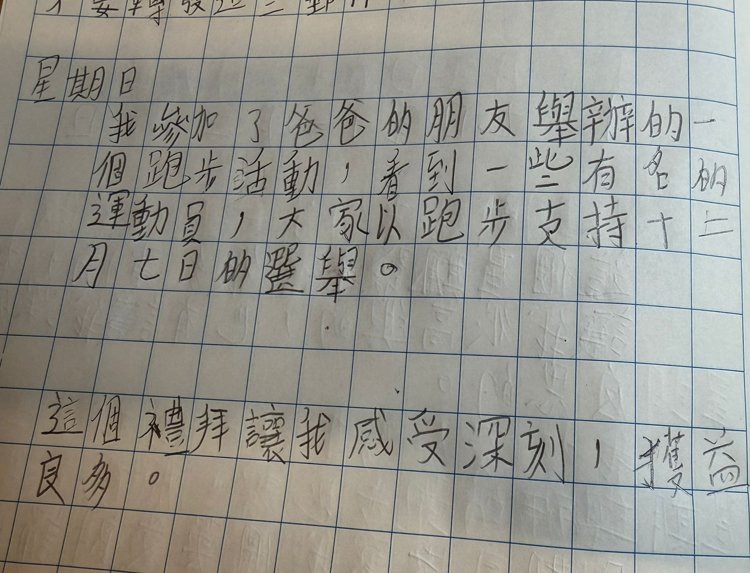 星期日
我參加了爸爸的朋友舉辦的一
個跑步活動，看到一些有名的
運動員，大家以跑步支持十二
月七日的選舉。
這個禮拜讓我感受深刻，獲益
良多。